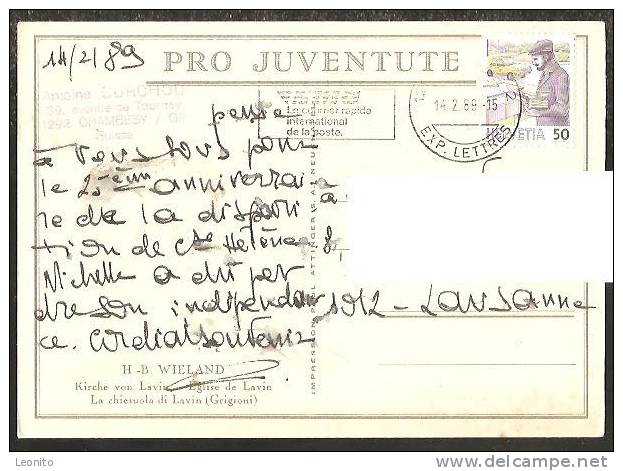 14/2/89
PRO JUVENTUTE
Antoine
39, avenue de Tournay
1292 CHAMBESY / GE
Suisse
Le courrier rapide
international
de la poste.
14.2.89-15
EXP. LETTRES
HELVETIA 50
pense
à vous tous pour
le 25ème anniversai
re de la dispari
tion de Cte Hélène
Michelle a dû per
dre son indépendan
ce. Cordial souvenir
à
8,
1012 - Lausanne
IMPRESSION PAUL ATTINGER S. A., NEUCH
H.-B. WIELAND
Kirche von Lavin Eglise de Lavin
La chiesuola di Lavin (Grigioni)
Leonito
www.delcampe.net